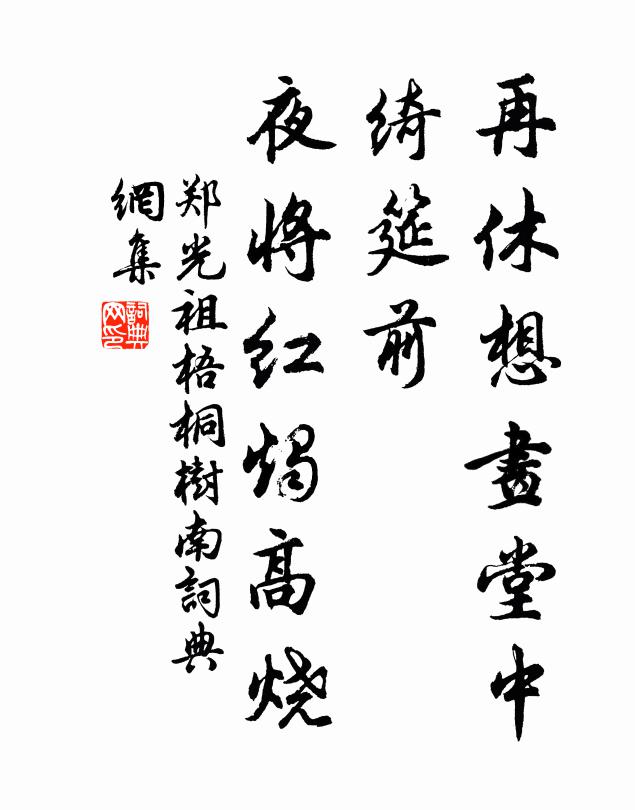 再休想畫堂中
綺筵前
夜將红燭高燒
郑光祖梧桐樹南詞典
網集
詞典
网印